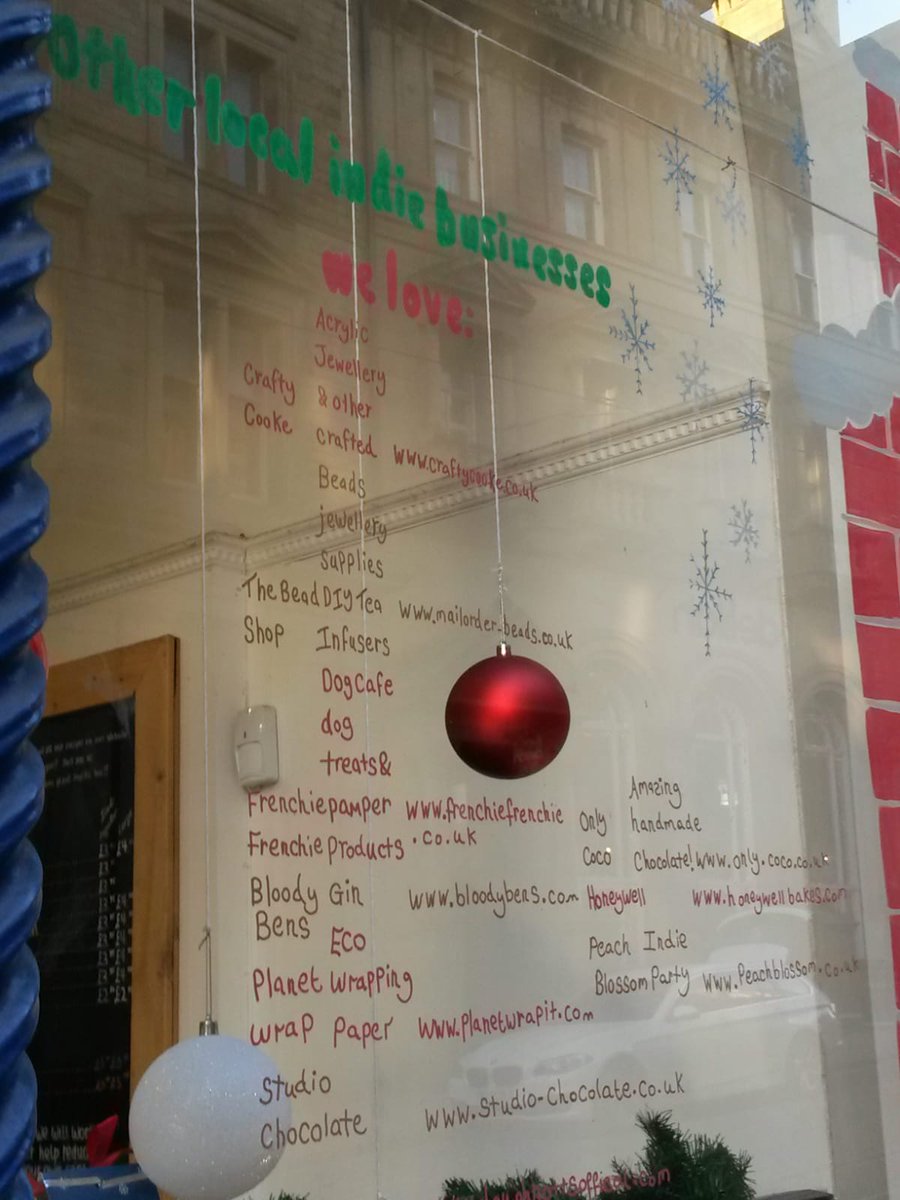 other local indie businesses
we love:
Acrylic
Jewellery
Crafty & other
Cooke crafted www.craftycooke.co.uk
Beads
jewellery
supplies
The Bead DIY Tea www.mailorder-beads.co.uk
Shop Infusers
Dog Cafe
dog
treats&
Frenchie pamper www.frenchiefrenchie
Frenchie Products .co.uk
Amazing
Only handmade
Coco Chocolate! www.only.coco.co.uk
Bloody Gin www.bloodybens.com
Bens
Honeywell www.honeywellbakes.com
Eco
Peach Indie
Blossom Party www.Peachblossom.co.uk
Planet wrapping
wrap paper www.planetwrapit.com
Studio
Chocolate www.studio-chocolate.co.uk
we will
help